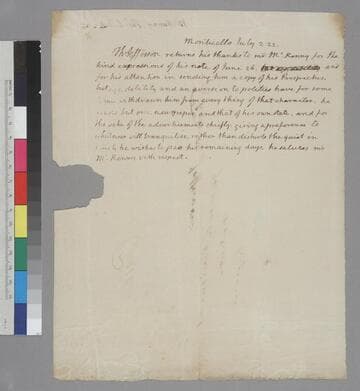 Monticello July 2. 22.
Th: Jefferson returns his thanks to mr McKenny for the
kind expressions of his note of June 26. and
for his attention in sending him a copy of his Prospectus.
but age, debility and an aversion to politics have for some
withdrawn him from every thing of that character. he
reads but one newspaper and that of his own state, and for
the sake of the advertisements chiefly. giving a preference to
whatever will tranquilise rather than disturb the quiet in
which he wishes to pass his remaining days he salutes mr
with respect.